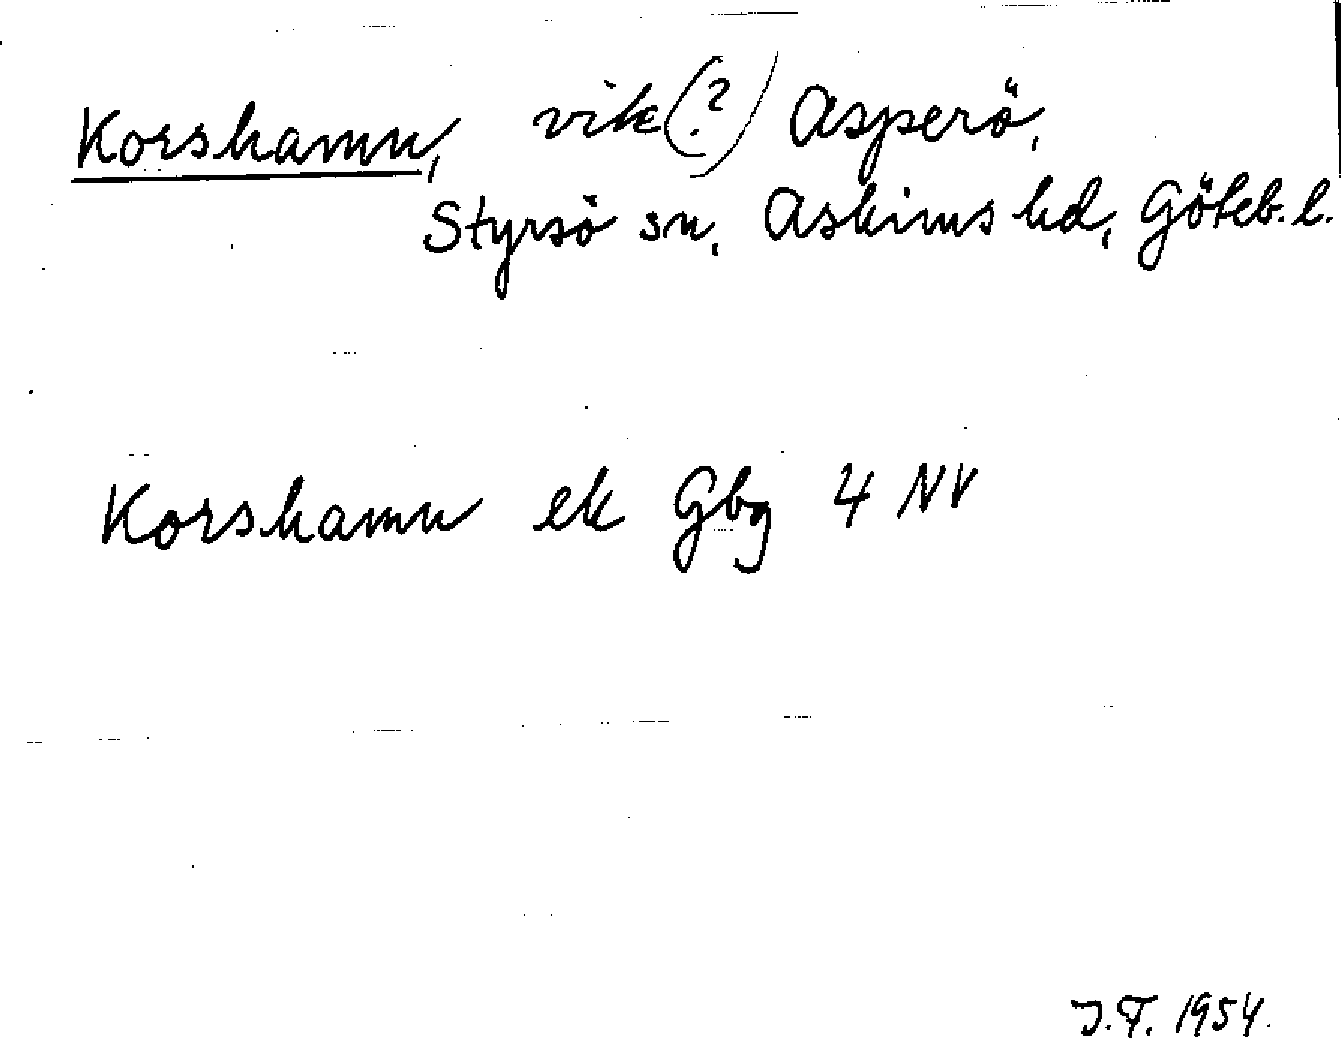 Korshamn, vik(?) Asperö,
Styrsö sn, Askims hd, Göteb. l.
Korshamn ek Gbg 4 NV
J.F. 1954.